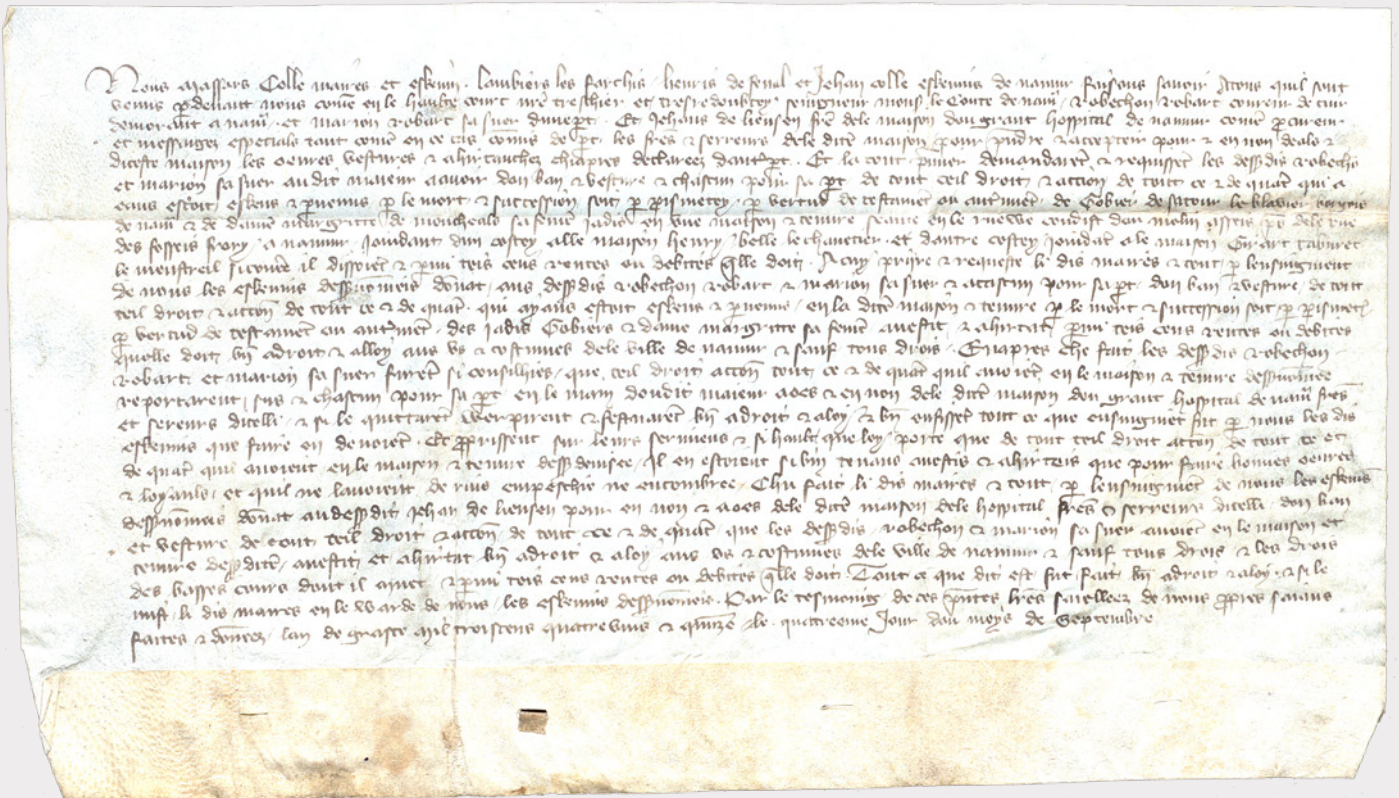 Nous Massars Colle maires et eskevin . Lambiers les farchis . henris de fenal et Jehan colle eskevins de namur faisons savoir Atous quil sont
venus p devant nous come en le haulte court nre treschier et tresredoubtey seingneur mons le Conte de nam . Robechon Robart coureur de cuir
demorant a nam . et marion Robart sa suer dune pt . Et Jehans de liensen fre dele maison dou grant hospital de namur come pcureur
et messagez especials tant come en ce cas comis de pt les fres & serreurs dele dite maison pour pndre & accepteir pour & en non deale &
diceste maison les oevres vestures & ahirtanchez chiapres declareez dautr pt . Et la tout pmier demandaret & requisset les dessdis Robechō
et marion sa suer au dit maieur a avoir don ban & vesture & chascun pour sa pt de tout teil droit & action de tout ce & de quat qui a
eaus estoit eskeus & pvenus p le mort & succession soit p pismetey p vertud de testamēt ou autmēt de Gobier de satour le blavier borgois
de nam & de dame margritte de moncheals sa feme jadis en une maison & tenure seante en le ruewe condist dou molin
des fosseis frory a namur Joindant dun costey alle maison henry belle le chanetier et dautre costey joindāt a le maison Girart tabiret
le menestreil sicome il dissoiēt & pmi teis cens rentes ou debites qlle doit . A cuy prijre & requeste li dis maires & tout p lensingniment
de nous les eskevins dessnomeis donat aus dessdis Robechon Robart & marion sa suer & a chascun pour sa pt don ban & vesture de tout
teil droit & accon de tout ce & de quat qui ayaus estoit eskeus & pvenus en la dite maison & tenure p le mort & succession soit p pismetey
p vertud de testamēt ou autmēt des jadis Gobiers & dame margritte sa feme avestit & ahirtat pmi teis cens rentes ou debites
quelle doit bn adroit & alloy aus us & costumes dele ville de namur & sauf tous drois . Enapres che fait les dessdis Robechon
Robart et marion sa suer furēt si consilhies que teil droit accon tout ce & de quat quil avoiēt en le maison & tenure dessnomee
reportarent sus & chascun pour sa pt en le main doudit maieur aoes & en non dele dite maison dou grant hospital de nam fres
et sereurs dicelle & si le quittarēt werpirent & festuarēt bn adroit & aloy & bn enfisset tout ce que ensingniet fut p nous les dis
eskevins que faire en devoiēt . Et pprissent sur leurs seremens & si hault que loy porte que de tout teil droit accon de tout ce et
de quat quil avoient en le maison & tenure dess devisee Il en estoient si bin tenans avestis & ahirteis que pour faire bonnes oevres
& loyauls et quil ne lavoient de riens empeschie ne encombree . Chu fait li dis maires & tout p lensingniet de nous les eskevins
dessnomeis donat au dessdit Jehan de liensen pour en non & aoes dele dite maison dele hospital fres & serreurs dicelli don ban
et vesture de tout teil droit & accon de tout ce & de quat que les dessdis Robechon & marion sa suer avoiēt en le maison et
tenure dessdite avestit et ahirtat bn adroit & aloy aus us & costumes dele ville de namur & sauf tous drois & les drois
des basses cours dont il muet & pmi teis cens rentes ou debites qlle doit . Tout ce que dit est fut fait bn adroit & aloy & si le
mist li dis maires en le warde de nous les eskevins dessnomeis . Par le tesmoing de ces pntes lres saielleez de nous ppres saiaus
faites & doneez lan de grasce mil troiscens quatrevins & quinze le quatreeme Jour dou moys de Septembre